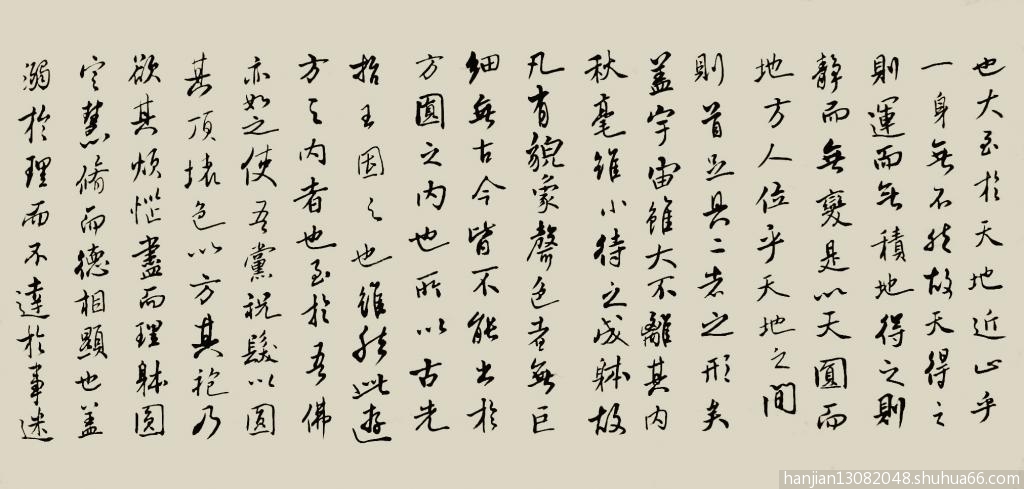 也大至於天地近止乎
一身無不然故天得之
則運而無積地得之則
靜而無變是以天圓而
地方人位乎天地之間
則首足具二者之形矣
蓋宇宙雖大不離其内
秋毫雖小待之成躰故
凡有貌象聲色者無巨
細無古今皆不能出於
方圓之内也所以古先
哲王因之也雖然此遊
方之内者也至於吾佛
亦如之使吾黨祝髮以圓
其頂壞色以方其袍乃
欲其煩惱盡而理躰圓
定慧脩而德相顯也蓋
溺於理而不達於事迷
hanjian13082048.shuhua66.com